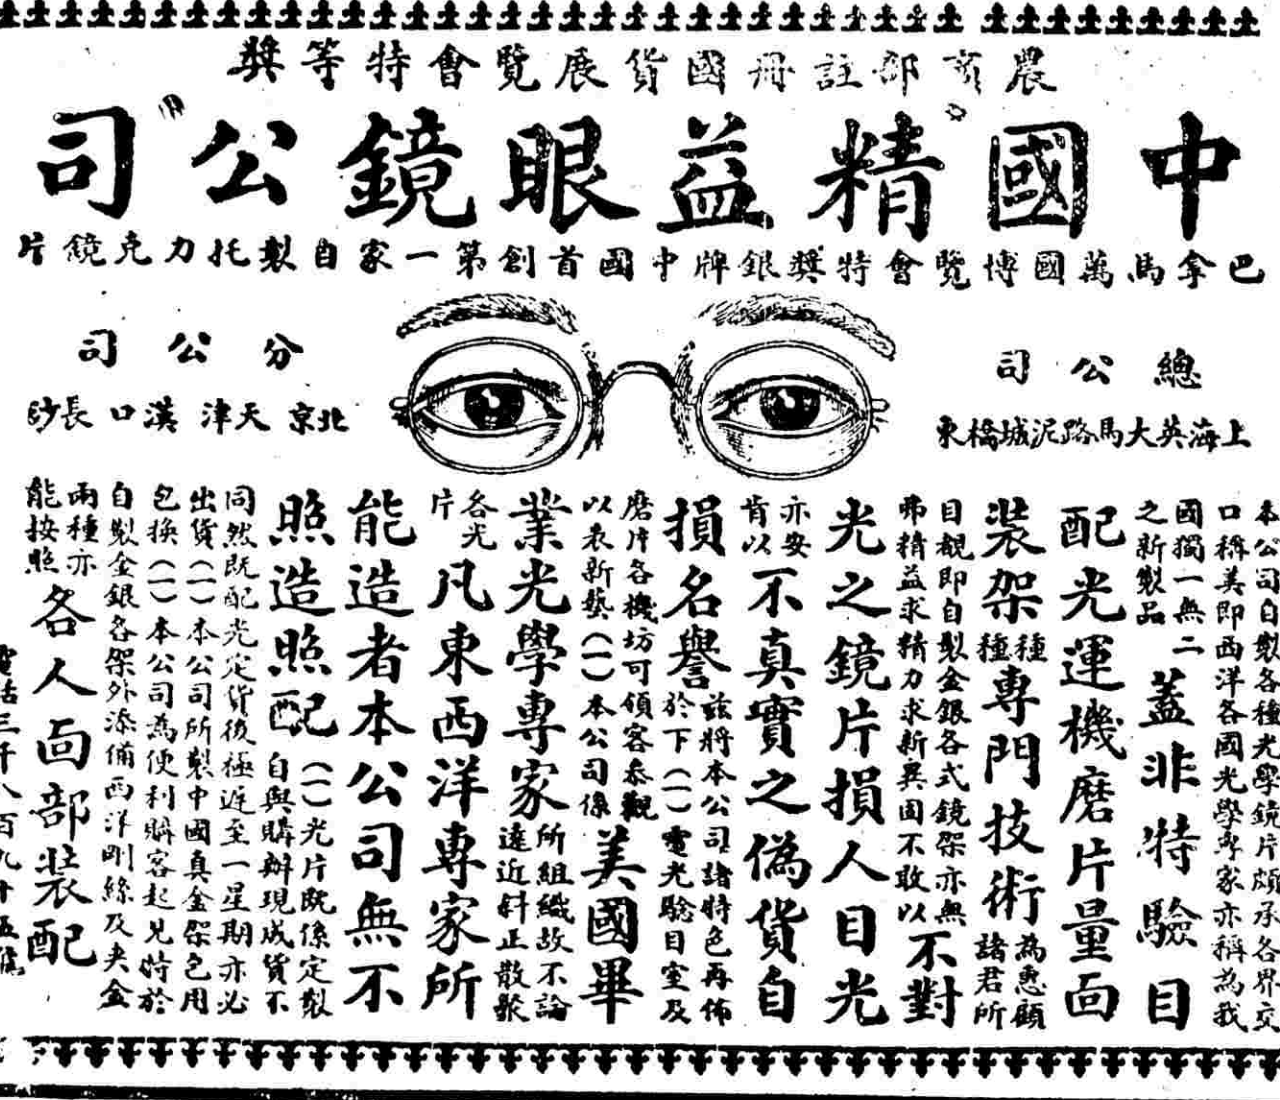 農商部註冊國貨展覽會特等獎
中國精益眼鏡公司
巴拿馬萬國博覽會特獎銀牌中國首創第一家自製托力克鏡片
總公司
上海英大馬路泥城橋東
分公司
北京 天津 漢口 長沙
本公司自製各種光學鏡片頗承各界交
口稱美即西洋各國光學專家亦稱為我
國獨一無二
之新製品
蓋非特驗目
配光運機磨片量面
裝架
種
種
專門技術
為惠顧
諸君所
目覩即自製金銀各式鏡架亦無
弗精益求精力求新異固不敢以
不對
光之鏡片損人目光
亦安
肯以
不真實之偽貨自
損名譽
茲將本公司諸特色再佈
於下(一)電光驗目室及
磨片各機坊可領客參觀
以表新藝(一)本公司係
美國畢
業光學專家
所組織故不論
遠近斜正散聚
各光
片
凡東西洋專家所
能造者本公司無不
照造照配
(一)光片既係定製
自與購辦現成貨不
同然既配光定貨後極遲至一星期亦必
出貨(一)本公司所製中國真金架包用
包換(一)本公司為便利購客起見特於
自製金銀各架外添備西洋剛絲及夾金
兩種亦
能按照
各人面部裝配
電話三千八百九十五號